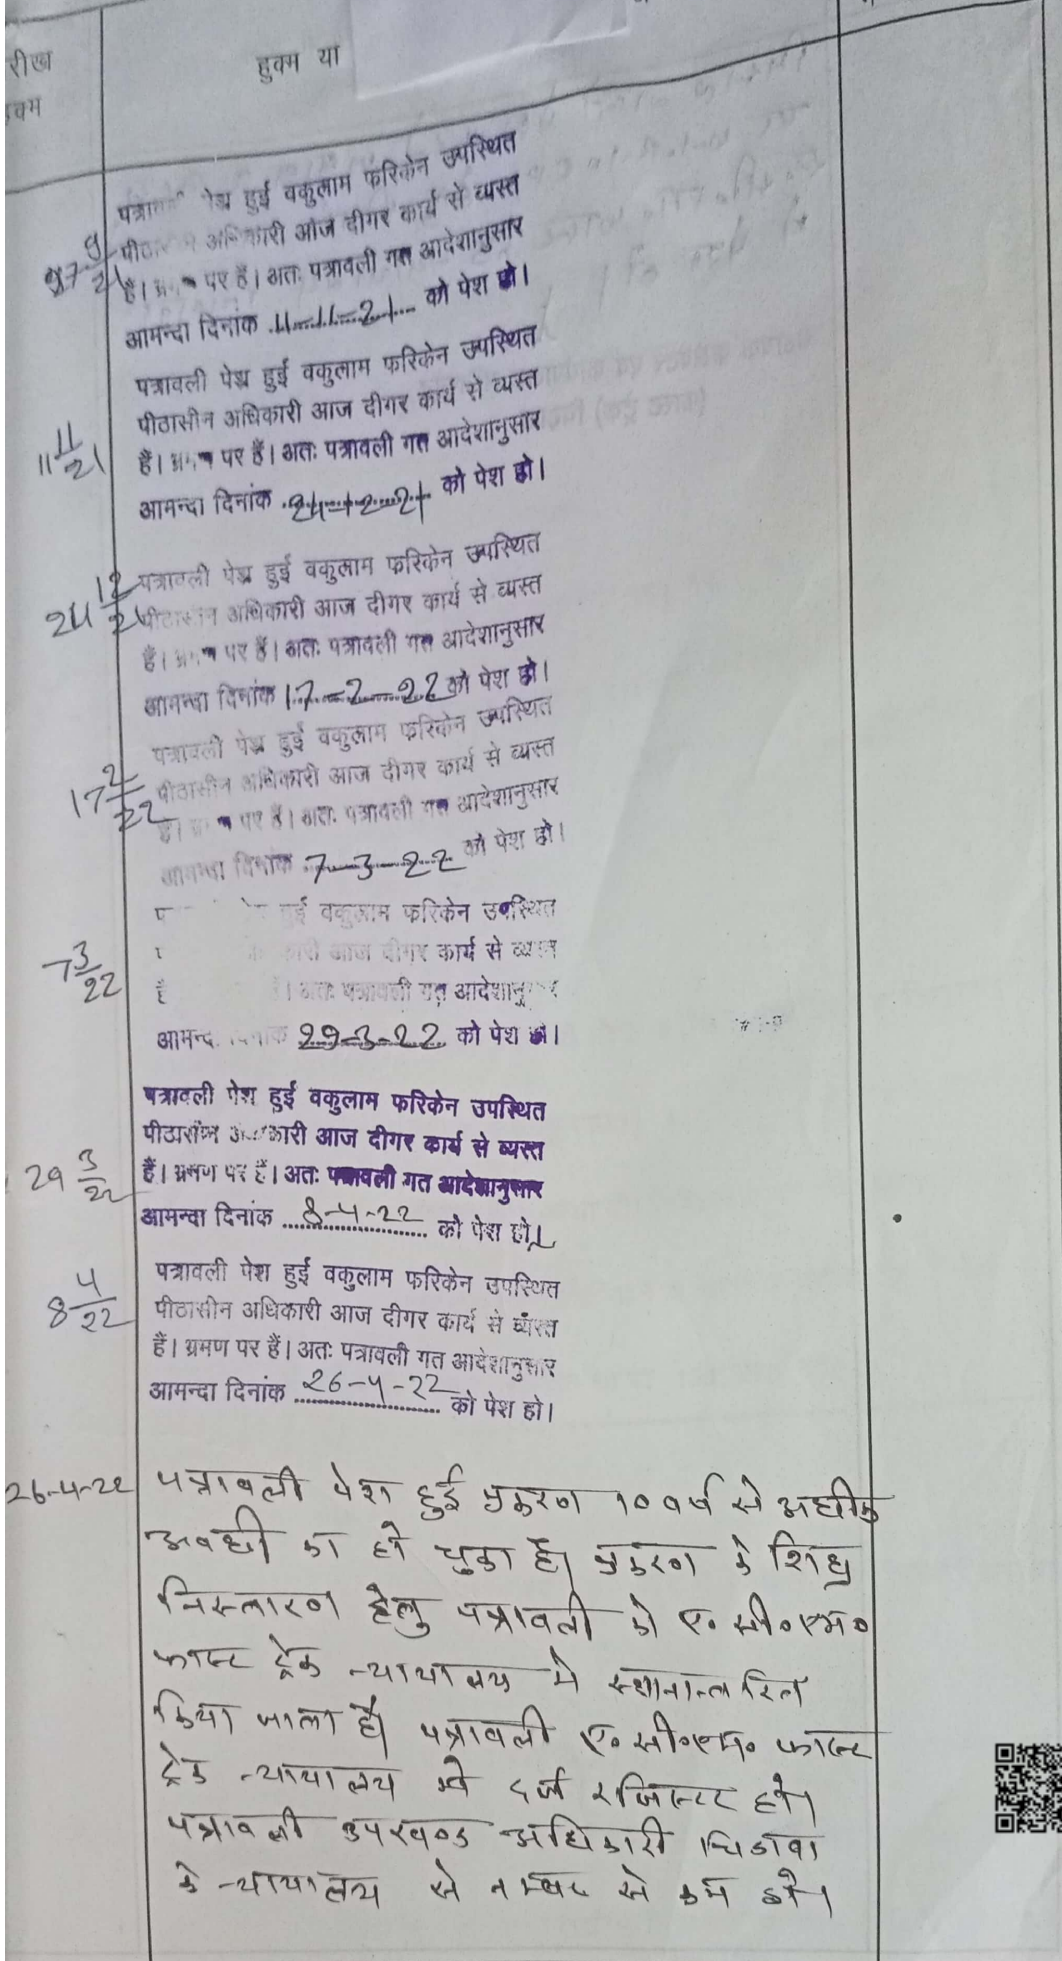 रीख
हुक्म या
क्म
पेश हुई वकुलाम फरिकेन उपस्थित
आज दीगर कार्य से व्यस्त
9
21
है। पर हैं। अतः पत्रावली गत आदेशानुसार
आमन्दा दिनांक 11-11-21 को पेश हो।
पत्रावली पेश हुई वकुलाम फरिकेन उपस्थित
पीठासीन अधिकारी आज दीगर कार्य से व्यस्त
11 11/21
हैं। पर हैं। अतः पत्रावली गत आदेशानुसार
आमन्दा दिनांक 24-12-21 को पेश हो।
24 12/21
पत्रावली पेश हुई वकुलाम फरिकेन उपस्थित
अधिकारी आज दीगर कार्य से व्यस्त
हैं। पर हैं। अतः पत्रावली गत आदेशानुसार
आमन्दा दिनांक 17-2-22 को पेश हो।
पत्रावली पेश हुई वकुलाम फरिकेन उपस्थित
17 2/22
पीठासीन अधिकारी आज दीगर कार्य से व्यस्त
पर हैं। अतः पत्रावली गत आदेशानुसार
आमन्दा दिनांक 7-3-22 को पेश हो।
हुई वकुलाम फरिकेन उपस्थित
7 3/22
आज दीगर कार्य से व्यस्त
अतः पत्रावली गत
29-3-22 को पेश हो।
पत्रावली पेश हुई वकुलाम फरिकेन उपस्थित
पीठासीन आज दीगर कार्य से व्यस्त
29 3/22
हैं। भ्रमण पर हैं। अतः पत्रावली गत आदेशानुसार
आमन्दा दिनांक 8-4-22 को पेश हो।
8 4/22
पत्रावली पेश हुई वकुलाम फरिकेन उपस्थित
पीठासीन अधिकारी आज दीगर कार्य से व्यस्त
हैं। भ्रमण पर हैं। अतः पत्रावली गत आदेशानुसार
आमन्दा दिनांक 26-4-22 को पेश हो।
26-4-22 पत्रावली पेश हुई प्रकरण १० वर्ष से अधीक
अवधी का हो चुका है। प्रकरण के शिघ्र
निस्तारण हेतु पत्रावली को ए॰ सी॰ एम॰
फास्ट ट्रेक न्यायालय मे स्थानान्तरित
किया जाता है। पत्रावली ए॰ सी॰ एम॰ फास्ट
ट्रेक न्यायालय मे दर्ज रजिस्टर हो।
पत्रावली उपखण्ड अधिकारी चिडावा
के न्यायालय से नम्बर से कम हो।